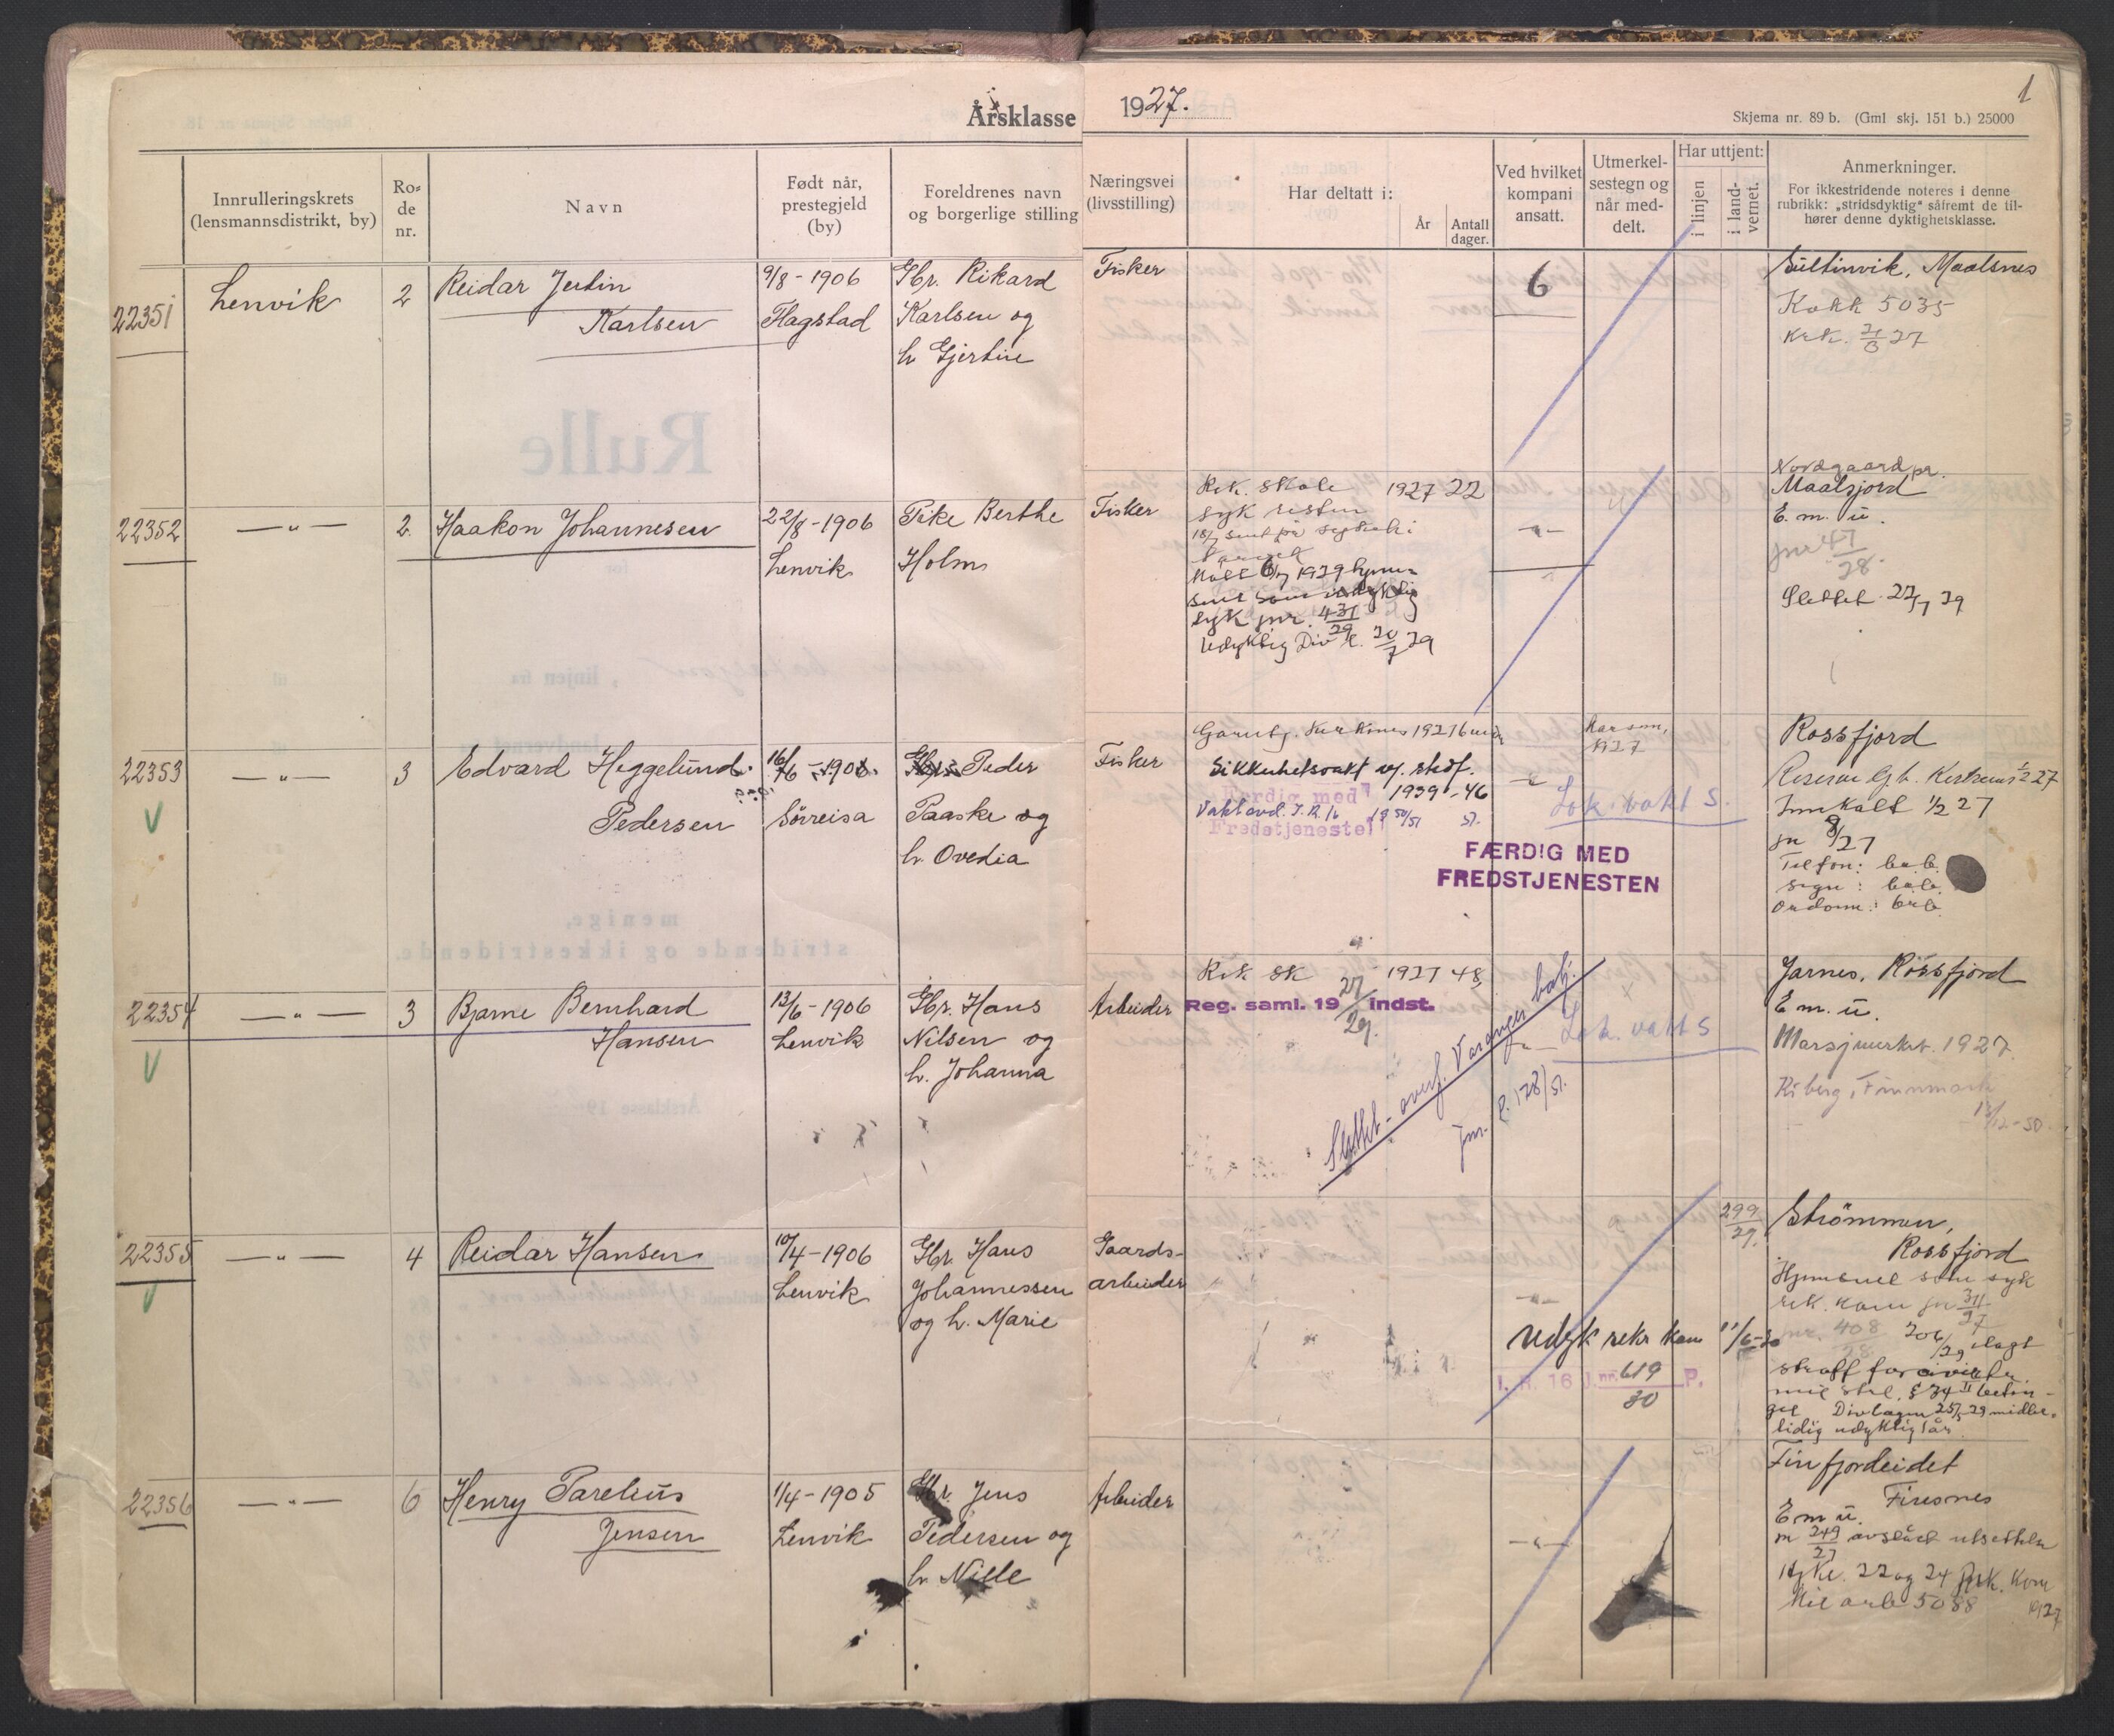 Årsklasse 1927.
1
Skjema nr. 89 b. (Gml skj. 151 b.) 25000
Innrulleringskrets
(lensmannsdistrikt, by)
Ro-
de
nr.
Navn
Født når,
prestegjeld
(by)
Foreldrenes navn
og borgerlige stilling
Næringsvei
(livsstilling)
Har deltatt i:
År
Antall
dager.
Ved hvilket
kompani
ansatt.
Utmerkel-
sestegn og
når med-
delt.
Har uttjent:
i linjen
i land-
vernet.
Anmerkninger.
For ikkestridende noteres i denne
rubrikk: „stridsdyktig" såfremt de til-
hører denne dyktighetsklasse.
22351
Lenvik
2
Reidar Jertin
Karlsen
9/8 - 1906
Flagstad
Gbr. Rikard
Karlsen og
h. Gjertine
Fisker
6
Sultinvik, Maalsnes
Kokk 5035
22352
— " —
2
Haakon Johannesen
22/8 - 1906
Lenvik
Pike Berthe
Holm
Fisker
Rek. skole 1927 22
syk resten
— " —
Nordgaard pr.
Maalsjord
E. m. u.
jnr 47/28.
Slettet 22/7 29
syk jnr. 431/29
Udyktig Div l. 20/7 29
22353
— " —
3
Edvard Heggelund
Pedersen
Sørreisa
Peder
Paaske og
h. Ovedia
Fisker
Garntj. Kirkenes 1927 6 mdr
Sikkerhetsvakt
1939 - 46
Færdig med
Fredstjeneste
Vakt avd. I.R. 16
57.
1927
— " —
Lok. vakt S.
FÆRDIG MED
FREDSTJENESTEN
Rossfjord
Innkalt 1/2 27
jn 8/27
Telefon: bab.
Sign: bab.
Ordonn.: bab.
22354
— " —
3
Bjarne Bernhard
Hansen
13/6 - 1906
Lenvik
Gbr. Hans
Nilsen og
h. Johanna
Arbeider
Rek. sk 1927 48
Reg. saml. 19 27/29. indst.
Slettet - overf. Varanger bat.
Jnr. P. 128/51.
— " —
Lok. vakt S
Jarnes, Rossfjord
E. m. u.
Marsjmerket 1927.
Kiberg, Finnmark
13/12-50.
22355
— " —
4
Reidar Hansen
10/4 - 1906
Lenvik
Gbr. Hans
Johannessen
og h. Marie
Gaards-
arbeider
— " —
299/29.
Udyk rekr kom 11/6-30
I. R. 16 J. nr. 619/30 P.
Strømmen,
Rossfjord
Hjemsendt som syk
rek. kom jn 311/27
jnr. 408/28 206/29 ilagt
straff for
mil strl. § 34 II betin-
get Divlagen 25/5 29 midler-
tidig udyktig 1 år
22356
— " —
6
Henry Parelius
Jensen
1/4 - 1905
Lenvik
Gbr. Jens
Pedersen og
h. Nille
Arbeider
— " —
Finfjordeidet
Finsnes
E m u.
jn 249/27 avslått utsettelse
22 og 24 Rek. kom
Mil arb 5088 1927